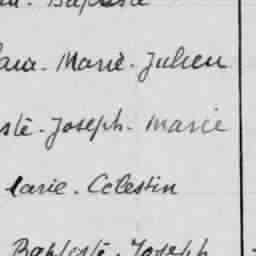 Baptiste
Marie. Julien
Joseph. Marie
Marie. Célestin
Baptiste. Joseph